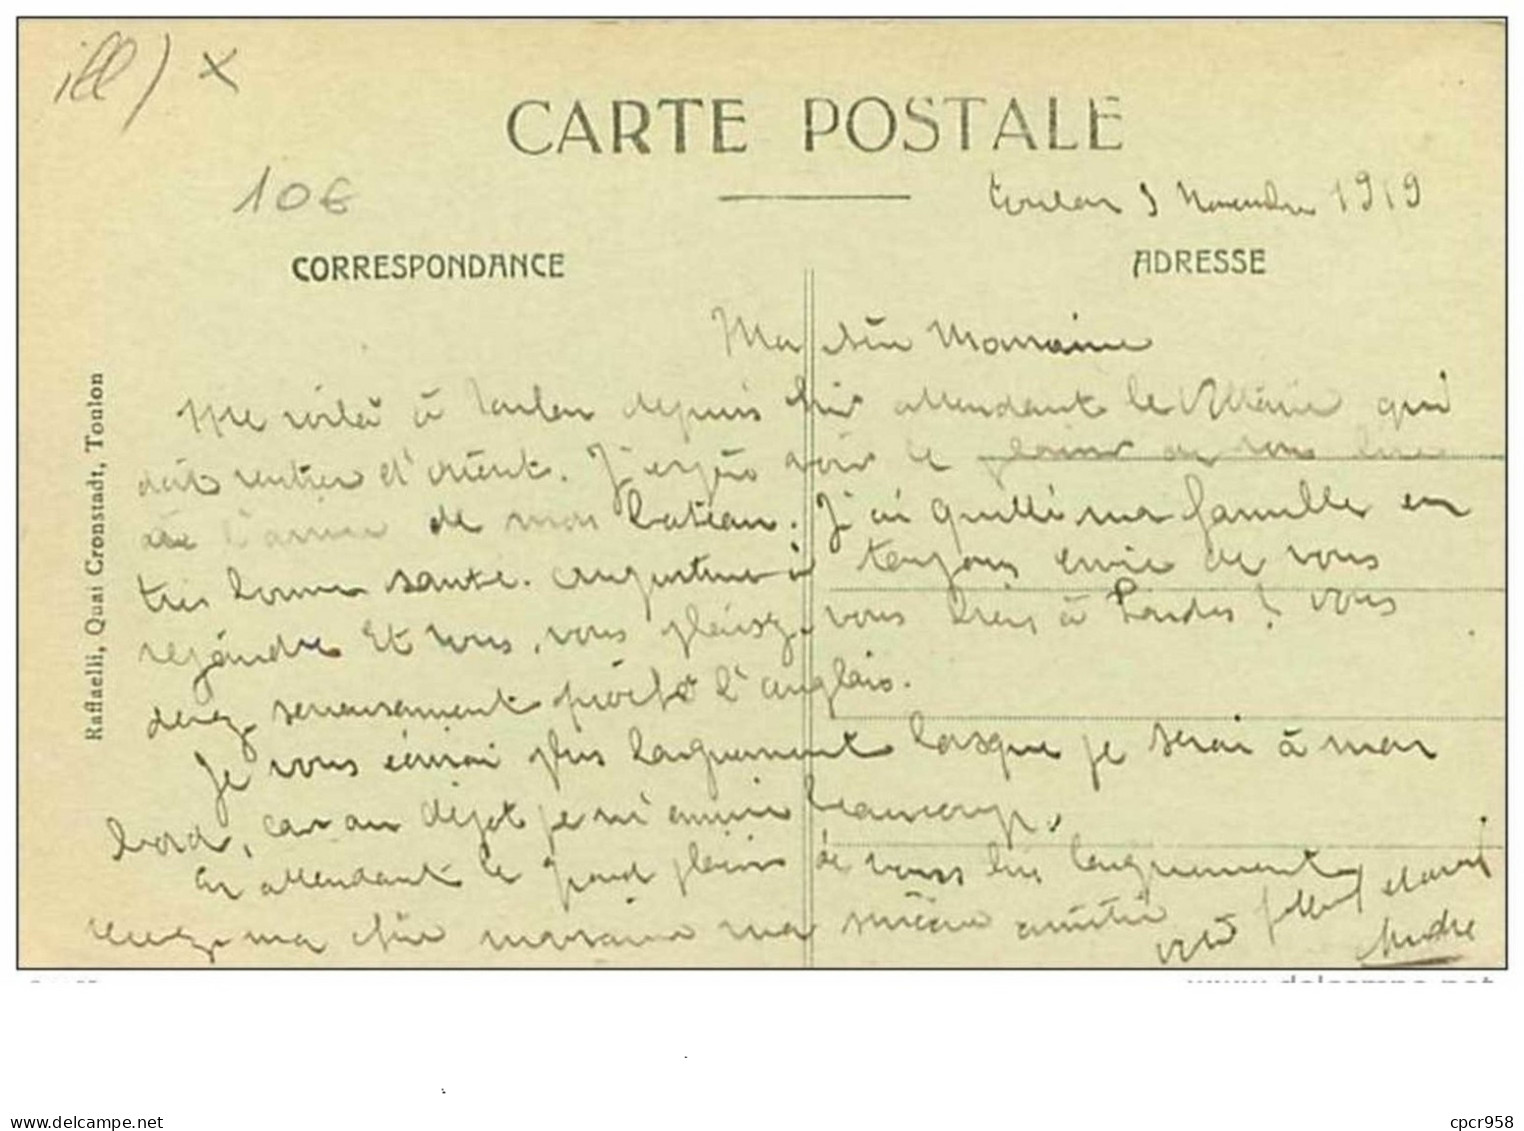 ill) x
CARTE POSTALE
10€
Toulon 3 Novembre 1919
CORRESPONDANCE
ADRESSE
Ma chère Marraine
Me voilà à Toulon depuis hier attendant le qui
doit rentrer d'orient. J'espère avoir le plaisir de vous lire
à l'arrivée de mon bateau. J'ai quitté ma famille en
très bonne santé. Augustine a toujours envie de vous
rejoindre Et vous, vous plaisez-vous bien à Londres? Vous
devez serieusement piocher l'anglais.
Je vous écrirai plus longuement lorsque je serai à mon
bord, car au dépot je m'ennuie beaucoup.
En attendant le grand plaisir de vous lire longuement
recevez ma chère marraine ma sincère amitié
Votre filleul
André
Raffaelli, Quai Cronstadt, Toulon
www.delcampe.net
www.delcampe.net
cpcr958